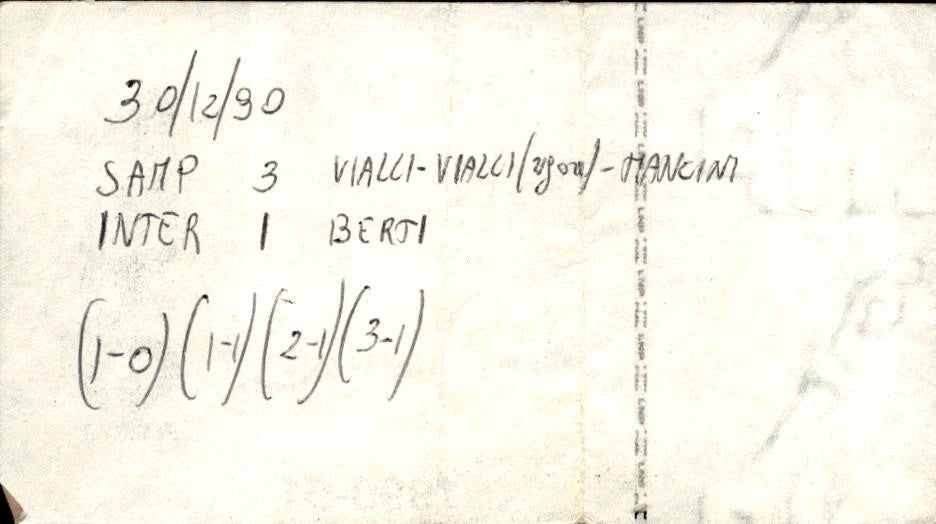 30/12/90
SAMP 3 VIALLI-VIALLI (rigore) - MANCINI
INTER 1 BERTI
(1-0) (1-1) (2-1) (3-1)